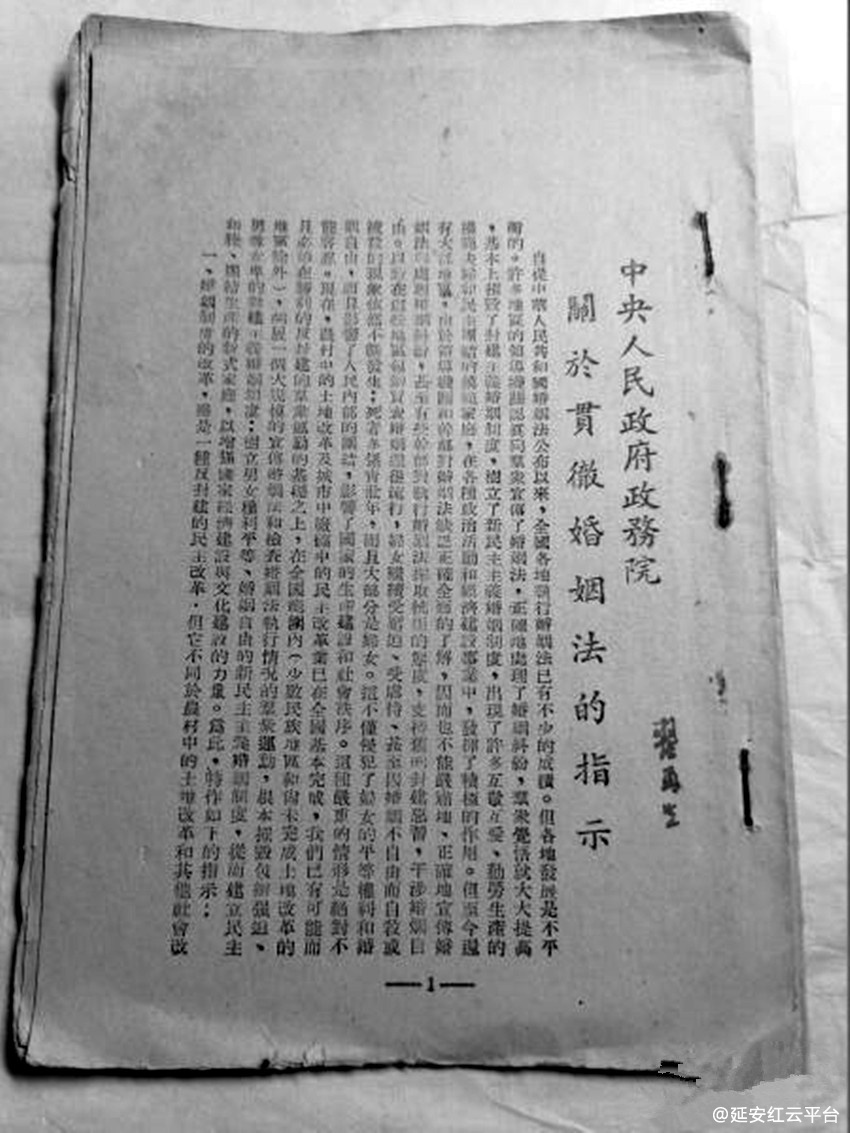 中央人民政府政務院
關於貫徹婚姻法的指示
自從中華人民共和國婚姻法公布以來,全國各地執行婚姻法已有不少的成績。但各地發展是不平
衡的。許多地區的領導機關認真向羣衆宣傳了婚姻法,正確地處理了婚姻糾紛,羣衆覺悟就大大提高
,基本上摧毀了封建主義婚姻制度,樹立了新民主主義婚姻制度,出現了許多互敬互愛、勤勞生產的
模範夫婦和民主團結的模範家庭,在各種政治活動和經濟建設事業中,發揮了積極的作用。但至今還
有大部地區,由於領導機關和幹部對婚姻法缺乏正確全面的了解,因而也不能嚴肅地、正確地宣傳婚
姻法與處理婚姻糾紛,甚至有些幹部對執行婚姻法採取抗拒的態度,支持舊的封建惡習,干涉婚姻自
由。以致在這些地區包辦買賣婚姻還很流行,婦女繼續受壓迫、受虐待、甚至因婚姻不自由而自殺或
被殺的現象依然不斷發生;死者多係靑壯年,而且大部分是婦女。這不僅侵犯了婦女的平等權利和婚
姻自由,而且影響了人民內部的團結,影響了國家的生產建設和社會秩序。這種嚴重的情形是絕對不
能容忍。現在,農村中的土地改革及城市中廠礦中的民主改革業已在全國基本完成,我們已有可能而
且必須在勝利的反封建的羣衆運動的基礎之上,在全國範圍內(少數民族地區和尙未完成土地改革的
地區除外),開展一個大規模的宣傳婚姻法和檢查婚姻法執行情況的羣衆運動,根本摧毀包辦强迫、
男尊女卑的封建主義婚姻制度;樹立男女權利平等、婚姻自由的新民主主義婚姻制度,從而建立民主
和睦、團結生產的新式家庭,以增强國家經濟建設與文化建設的力量。爲此,特作如下的指示:
一、婚姻制度的改革,雖是一種反封建的民主改革,但它不同於農村中的土地改革和其他社會改
—1—
@延安红云平台